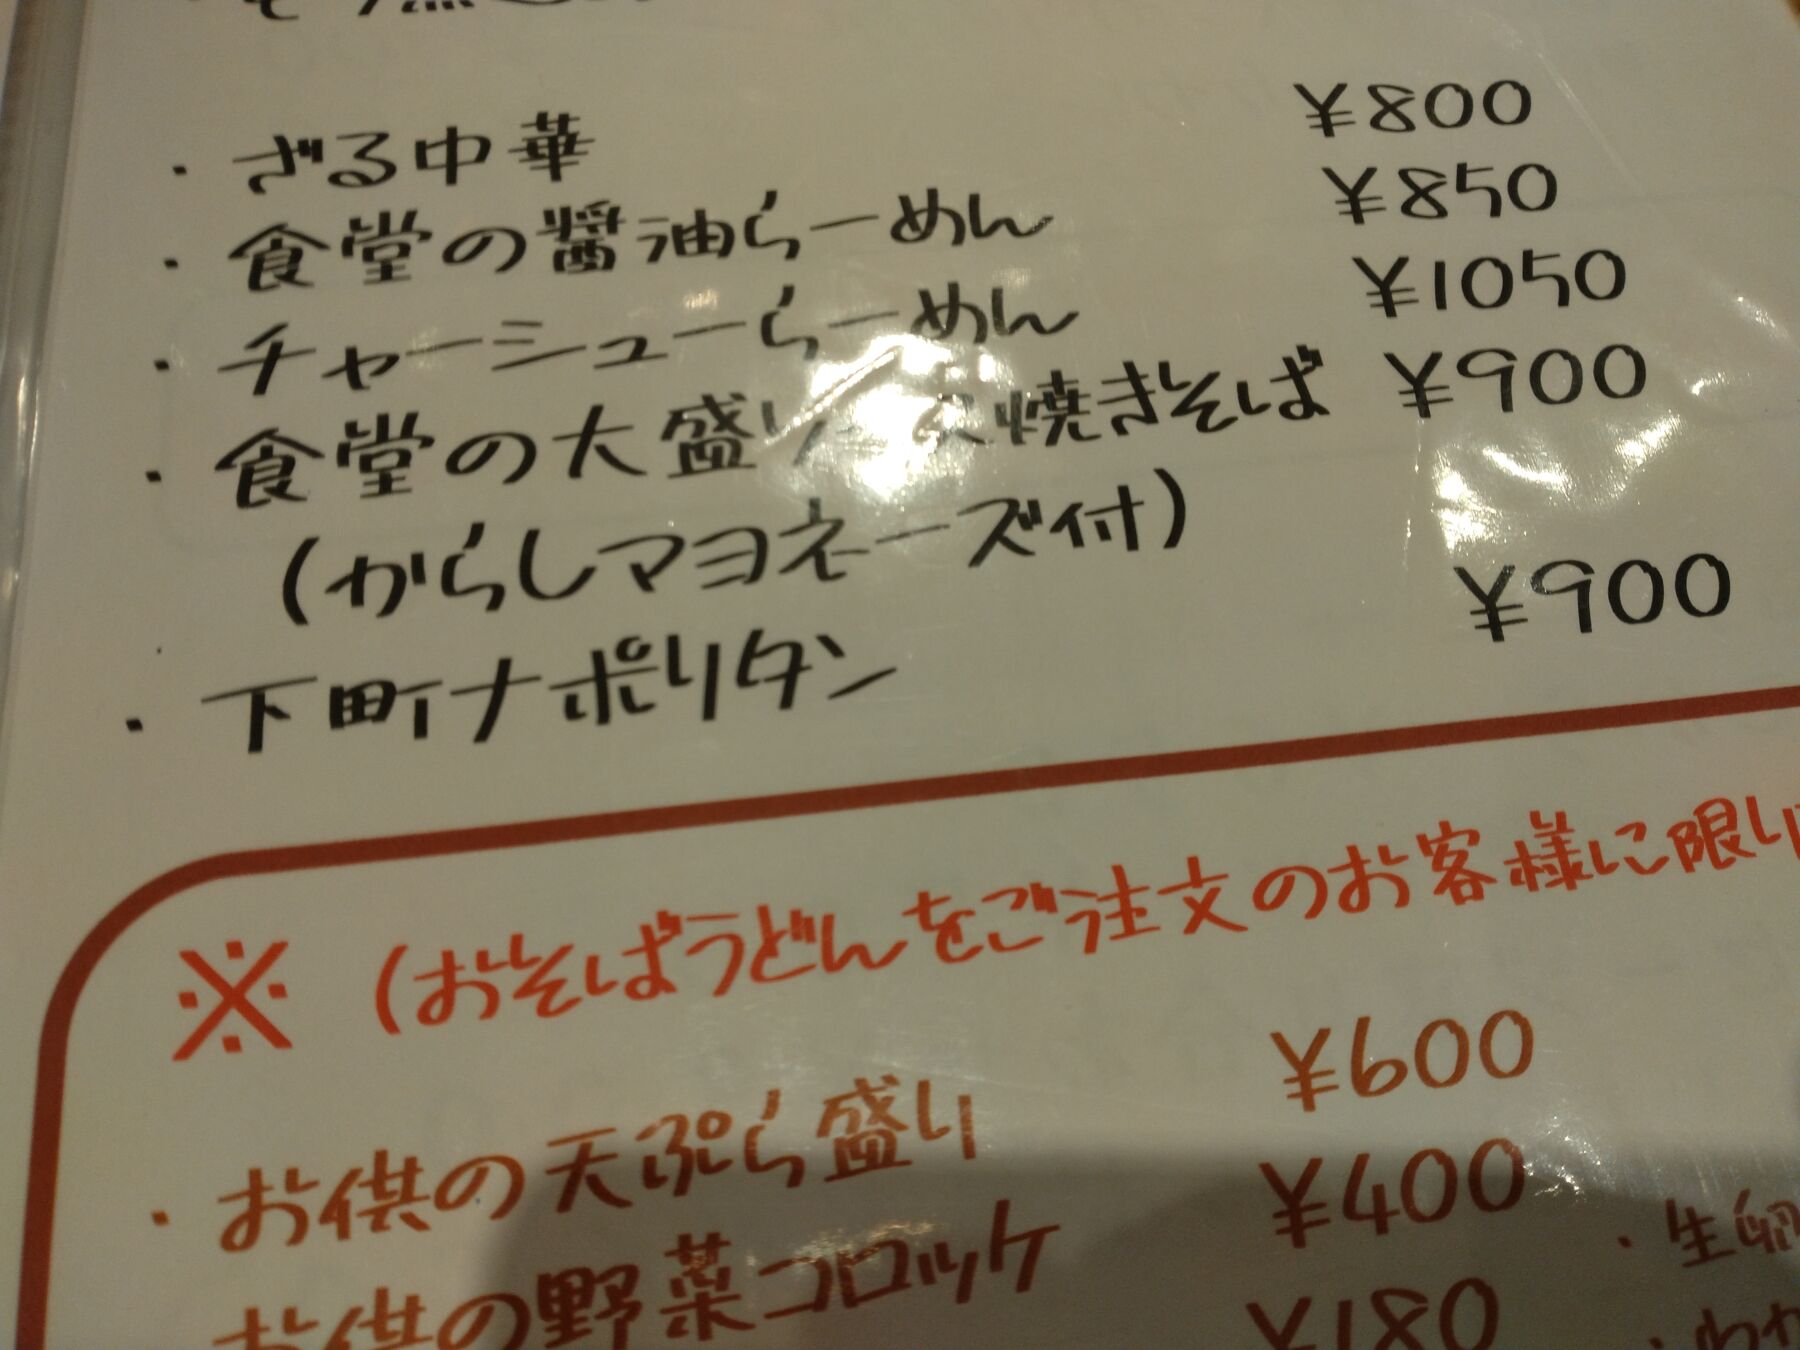 ・ざる中華 ¥800
・食堂の醤油らーめん ¥850
・チャーシューらーめん ¥1050
・食堂の大盛り 焼きそば ¥900
(からしマヨネーズ付)
・下町ナポリタン ¥900
※ (おそばうどんをご注文のお客様に限り
・お供の天ぷら盛り ¥600
お供の野菜コロッケ ¥400
¥180
・生卵